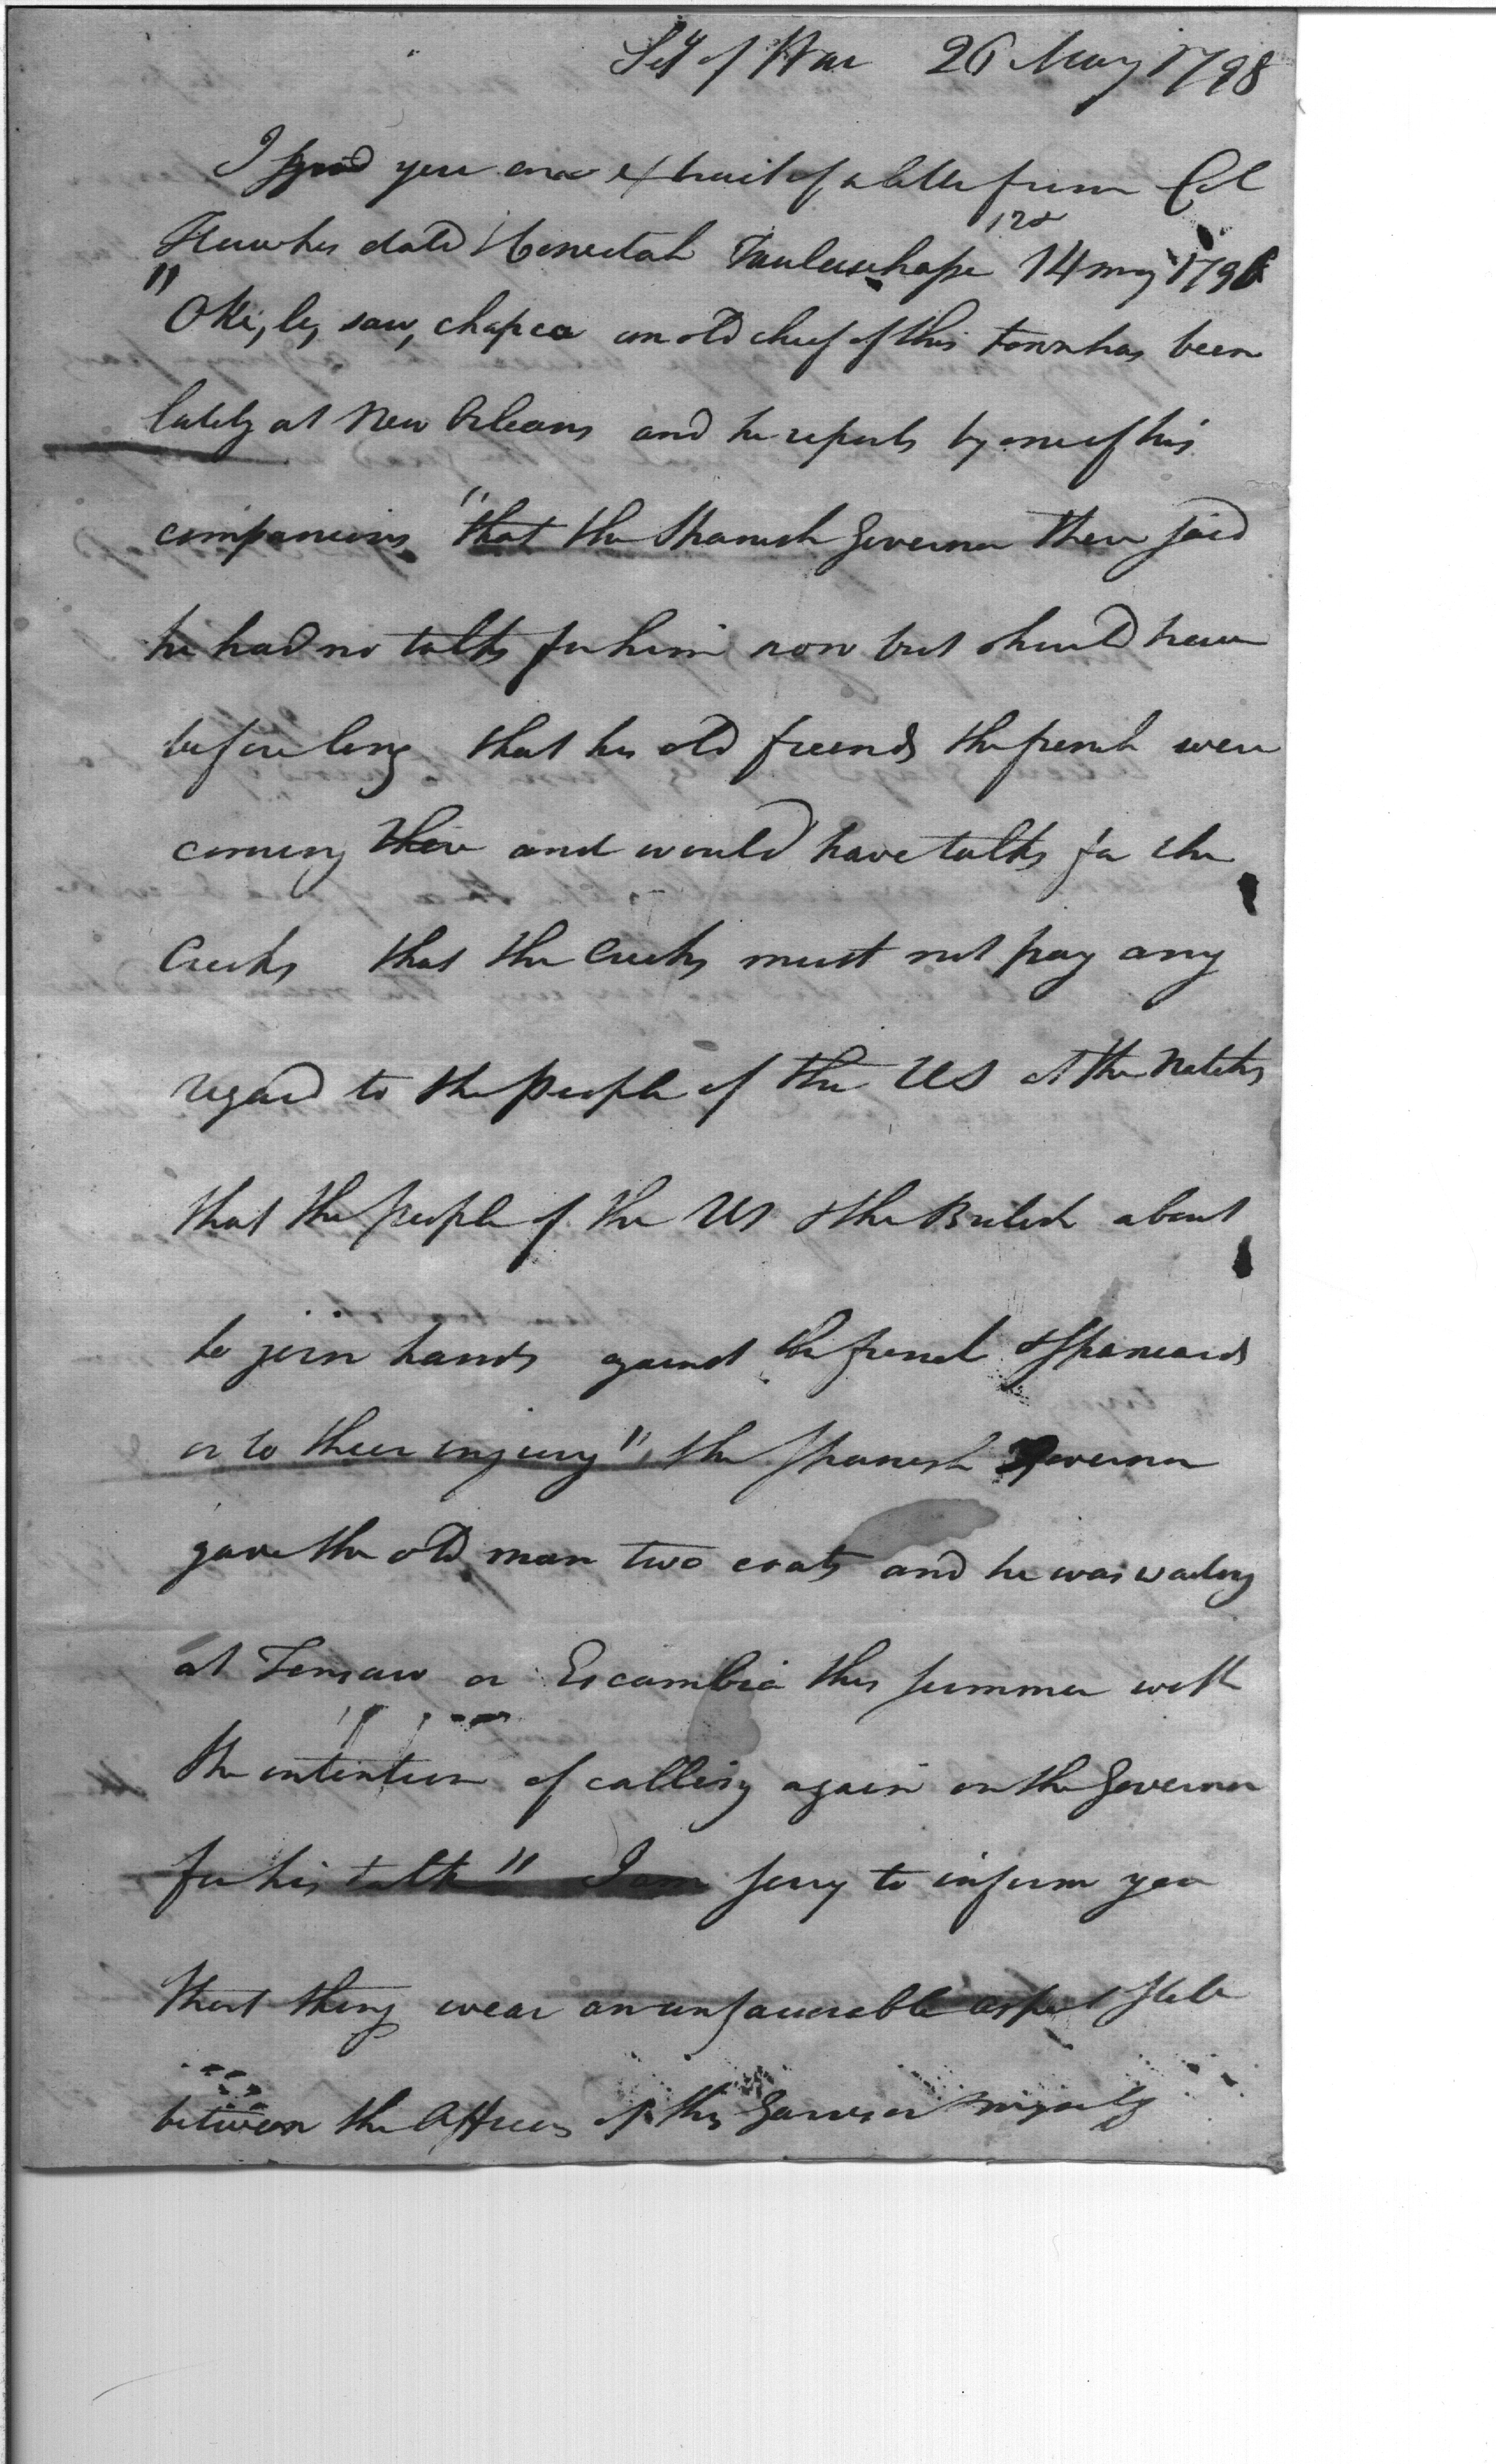 Secy of War 26 May 1798
I send you an extract of a letter from Col
Hawkins dated 14 may 1798
"Oke, ley, saw, chapco an old chief of this town has been
lately at New Orleans and he reports by one of his
companions "that the Spanish Governor there said
he had no talks for him now but should have
before long that his old freends the french were
coming there and would have talks for the
Creeks that the Creeks must not pay any
regard to the people of the US at the Natches
that the people of the US & the British about
to join hands against the french & Spaniards
or to their injury", the Spanish Governor
gave the old man two coats and he was waiting
at Tensaw or Escambia this summer with
the intention of calling again on the Governor
for his talk" I am sorry to inform you
that things wear an unfavourable aspect
between the Officers of this Garrison myself